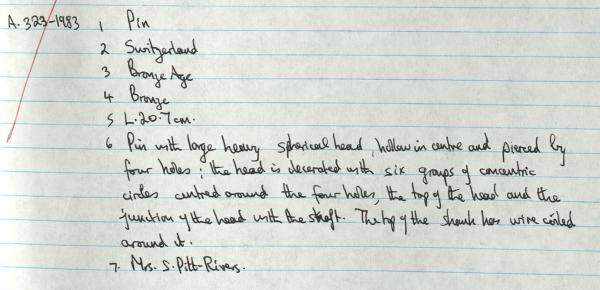 A.323-1983 1 Pin
2 Switzerland
3 Bronze Age
4 Bronze
5 L.20.7cm.
6 Pin with large heavy spherical head, hollow in centre and pierced by
four holes; the head is decorated with six groups of concentric
circles centred around the four holes, the top of the head and the
junction of the head with the shaft. The top of the shank has wire coiled
around it.
7. Mrs. S. Pitt-Rivers.